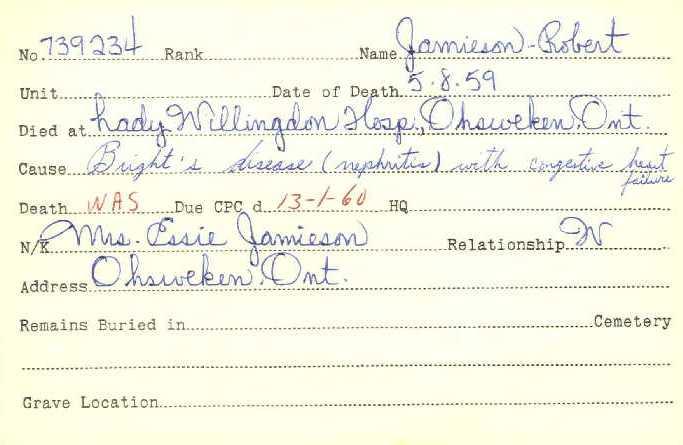 No. 739234 Rank Name Jamieson - Robert
Unit Date of Death 5.8.59
Died at Lady Willingdon Hosp., Ohsweken, Ont.
Cause Bright's disease (nephritis) with congestive heart failure
Death WAS Due CPC d 13-1-60 HQ
N/K Mrs. Essie Jamieson Relationship W
Address Ohsweken, Ont.
Remains Buried in Cemetery
Grave Location